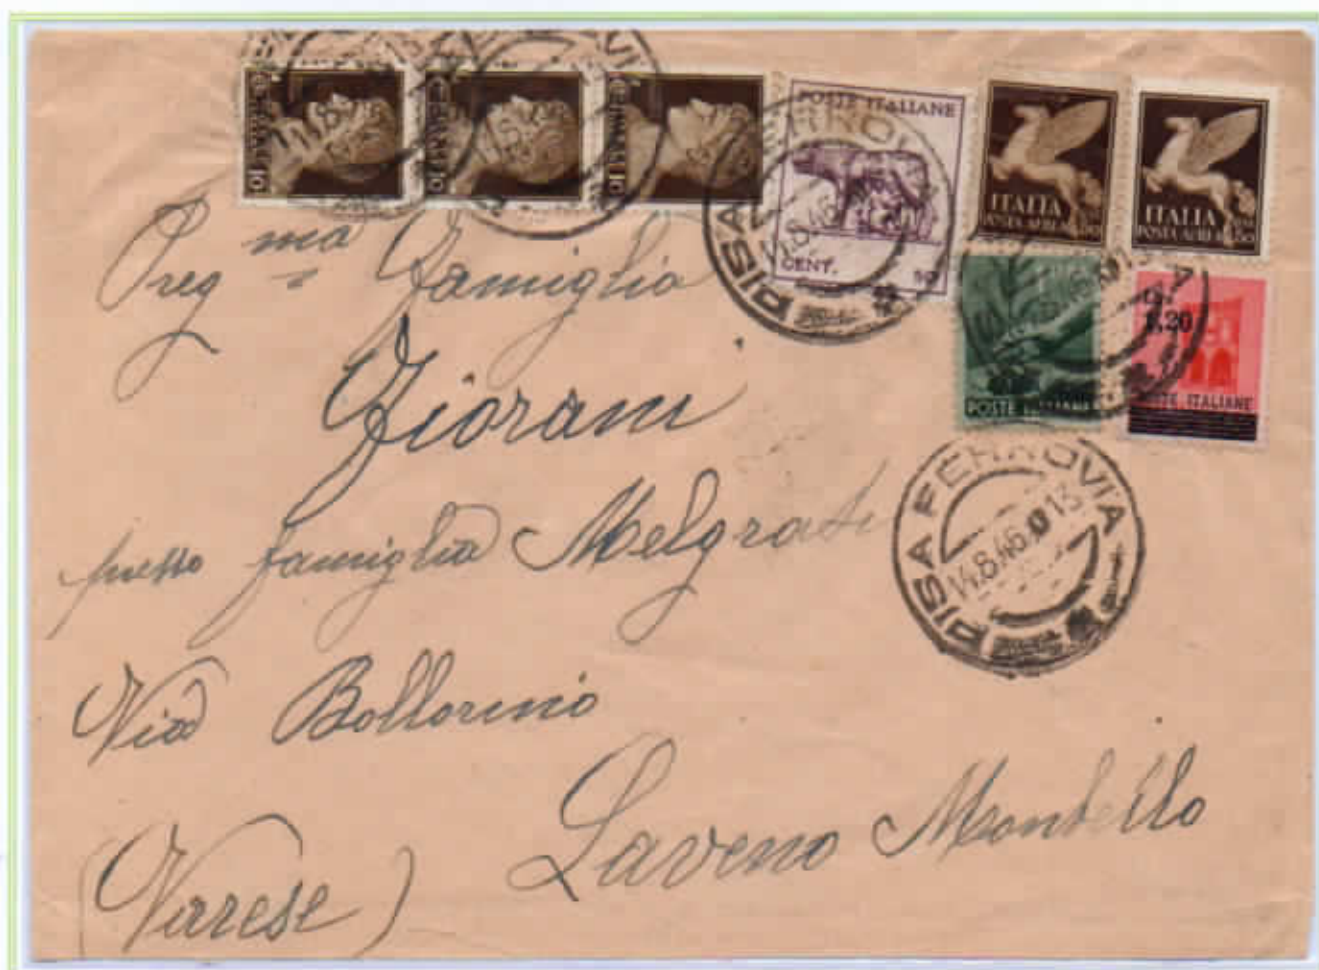 CENT. 10
CENT. 10
CENT. 10
POSTE ITALIANE
CENT. 10
ITALIA
POSTA AEREA 50
ITALIA
POSTA AEREA 50
POSTE ITALIANE
L. 1,20
POSTE ITALIANE
PISA FERROVIA
14.8.46 13
Preg ma Famiglia
Fiorani
presso famiglia Melgrati
Via Bollorino
Laveno Mombello
(Varese)